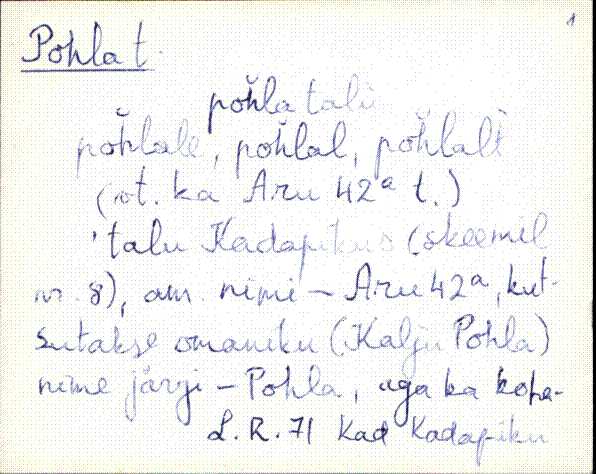 1
Pohla t.
pŏh̆la talu
pŏh̆lale, pŏh̆lal, pŏh̆lalt
(vt. ka Aru 42ª t.)
talu Kadapikus (skeemil
nr. 8), am. nimi – Aru 42ª, kut-
sutakse omaniku (Kalju Pohla)
nime järgi – Pohla, aga ka kopa-
L. R. 71 Kad Kadapiku